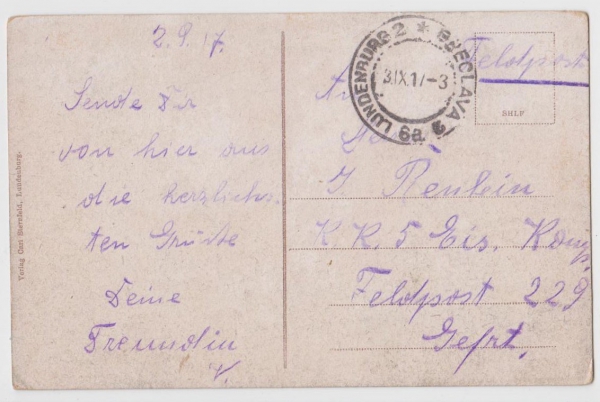 2.9.17.
Sende Dir
von hier aus
die herzlichs-
ten Grüße
Deine
Freundin
V.
Verlag Carl Sternfeld, Lundenburg.
LUNDENBURG 2 * BŘECLAVA 2
3.IX.17-3
6a
Feldpost
SHLP
An
J.
K. K. 5 Eis. Komp.
Feldpost 229
Gefrt.